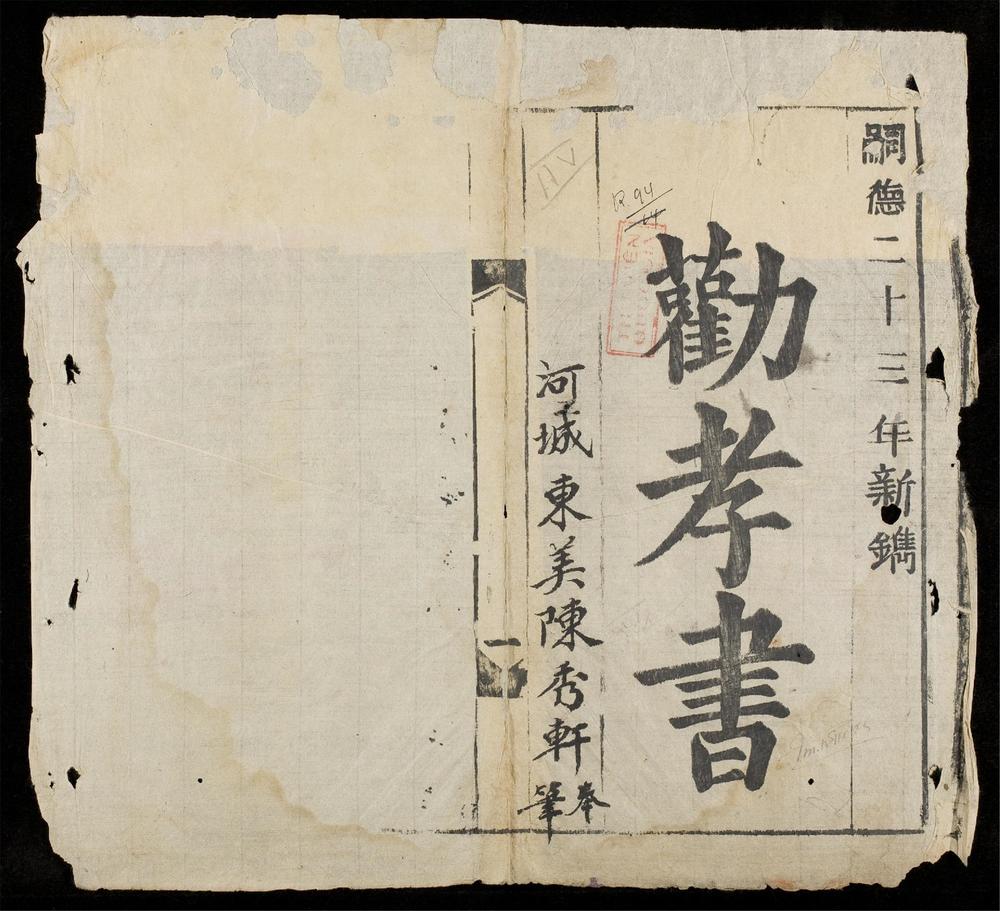 嗣德二十三年新鐫
勸孝書
河城東美陳秀軒奉筆
一
R.94
AV